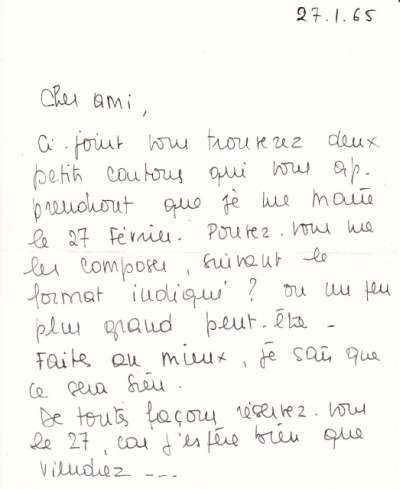 27.1.65
Cher ami,
Ci-joint vous trouverez deux
petits cartons qui vous ap-
prendront que je me marie
le 27 Février. Pouvez-vous me
les composer, suivant le
format indiqué ? ou un peu
plus grand peut-être -
Faites au mieux, je sais que
ce sera bien.
De toutes façons réservez-vous
le 27, car j'espère bien que
viendrez ---